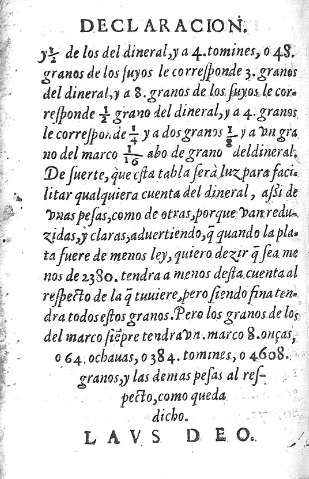 DECLARACION.
y ½ de los del dineral, y a 4. tomines, o 48.
granos de los suyos le corresponde 3. granos
del dineral, y a 8. granos de los suyos le cor-
responde ½ grano del dineral, y a 4. granos
le corresponde ¼ y a dos granos ⅛ y a vn gra
no del marco 1/16 abo de grano del dineral.
De suerte, que esta tabla será luz para faci-
litar qualquiera cuenta del dineral, assi de
vnas pesas, como de otras, porque van redu-
zidas, y claras, aduertiendo, q̃ quando la pla-
ta fuere de menos ley, quiero dezir q̃ sea me
nos de 2380. tendra a menos desta cuenta al
respecto de la q̃ tuuiere, pero siendo fina ten-
dra todos estos granos. Pero los granos de los
del marco siẽpre tendra vn. marco 8. onças,
o 64. ochauas, o 384. tomines, o 4608.
granos, y las demas pesas al res-
pecto, como queda
dicho.
LAVS DEO.